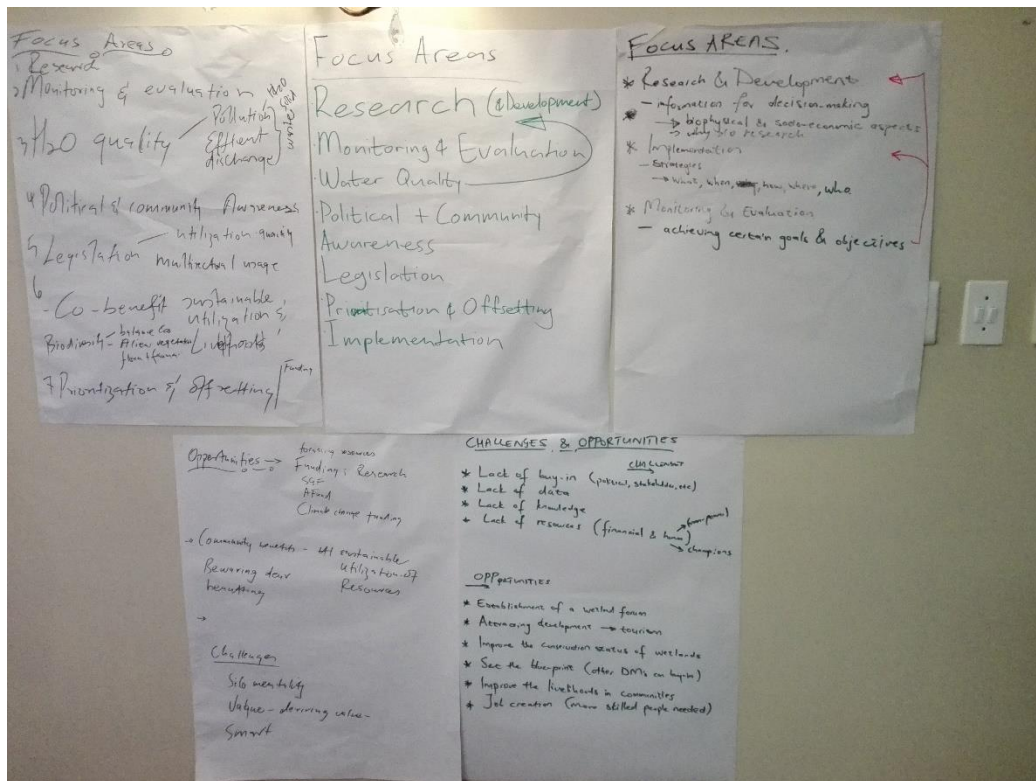 Focus Areas
1 Research
2 Monitoring & evaluation
3 H2O quality
Pollution
Effluent
discharge
H2O
waste
4 Political & community Awareness
5 Legislation
utilization
usage
6
- Co-benefit sustainable
utilization &
Biodiversity - balance
Livelihoods
7 Prioritization & offsetting
Funding
Focus Areas
Research (& Development)
Monitoring & Evaluation
Water Quality
Political + Community
Awareness
Legislation
Privatisation & Offsetting
Implementation
FOCUS AREAS.
* Research & Development
- information for decision-making
→ biophysical & socio-economic aspects
→ why do research
* Implementation
- Strategies
→ what, when, how, where, who
* Monitoring & Evaluation
- achieving certain goals & objectives
Opportunities →
resources
Funding: Research
Climate change funding
→ Community benefits - sustainable
utilization of
Resources
→
Challenges
Silo mentality
Value - deriving value -
Smart
CHALLENGES & OPPORTUNITIES
CHALLENGES
* Lack of buy-in (political, stakeholder, etc)
* Lack of data
* Lack of knowledge
* Lack of resources (financial & human)
→ champions
OPPORTUNITIES
* Establishment of a wetland forum
* Attracting development → tourism
* Improve the conservation status of wetlands
* See the blueprint (other DMs on buy-in)
* Improve the livelihoods in communities
* Job creation (more skilled people needed)